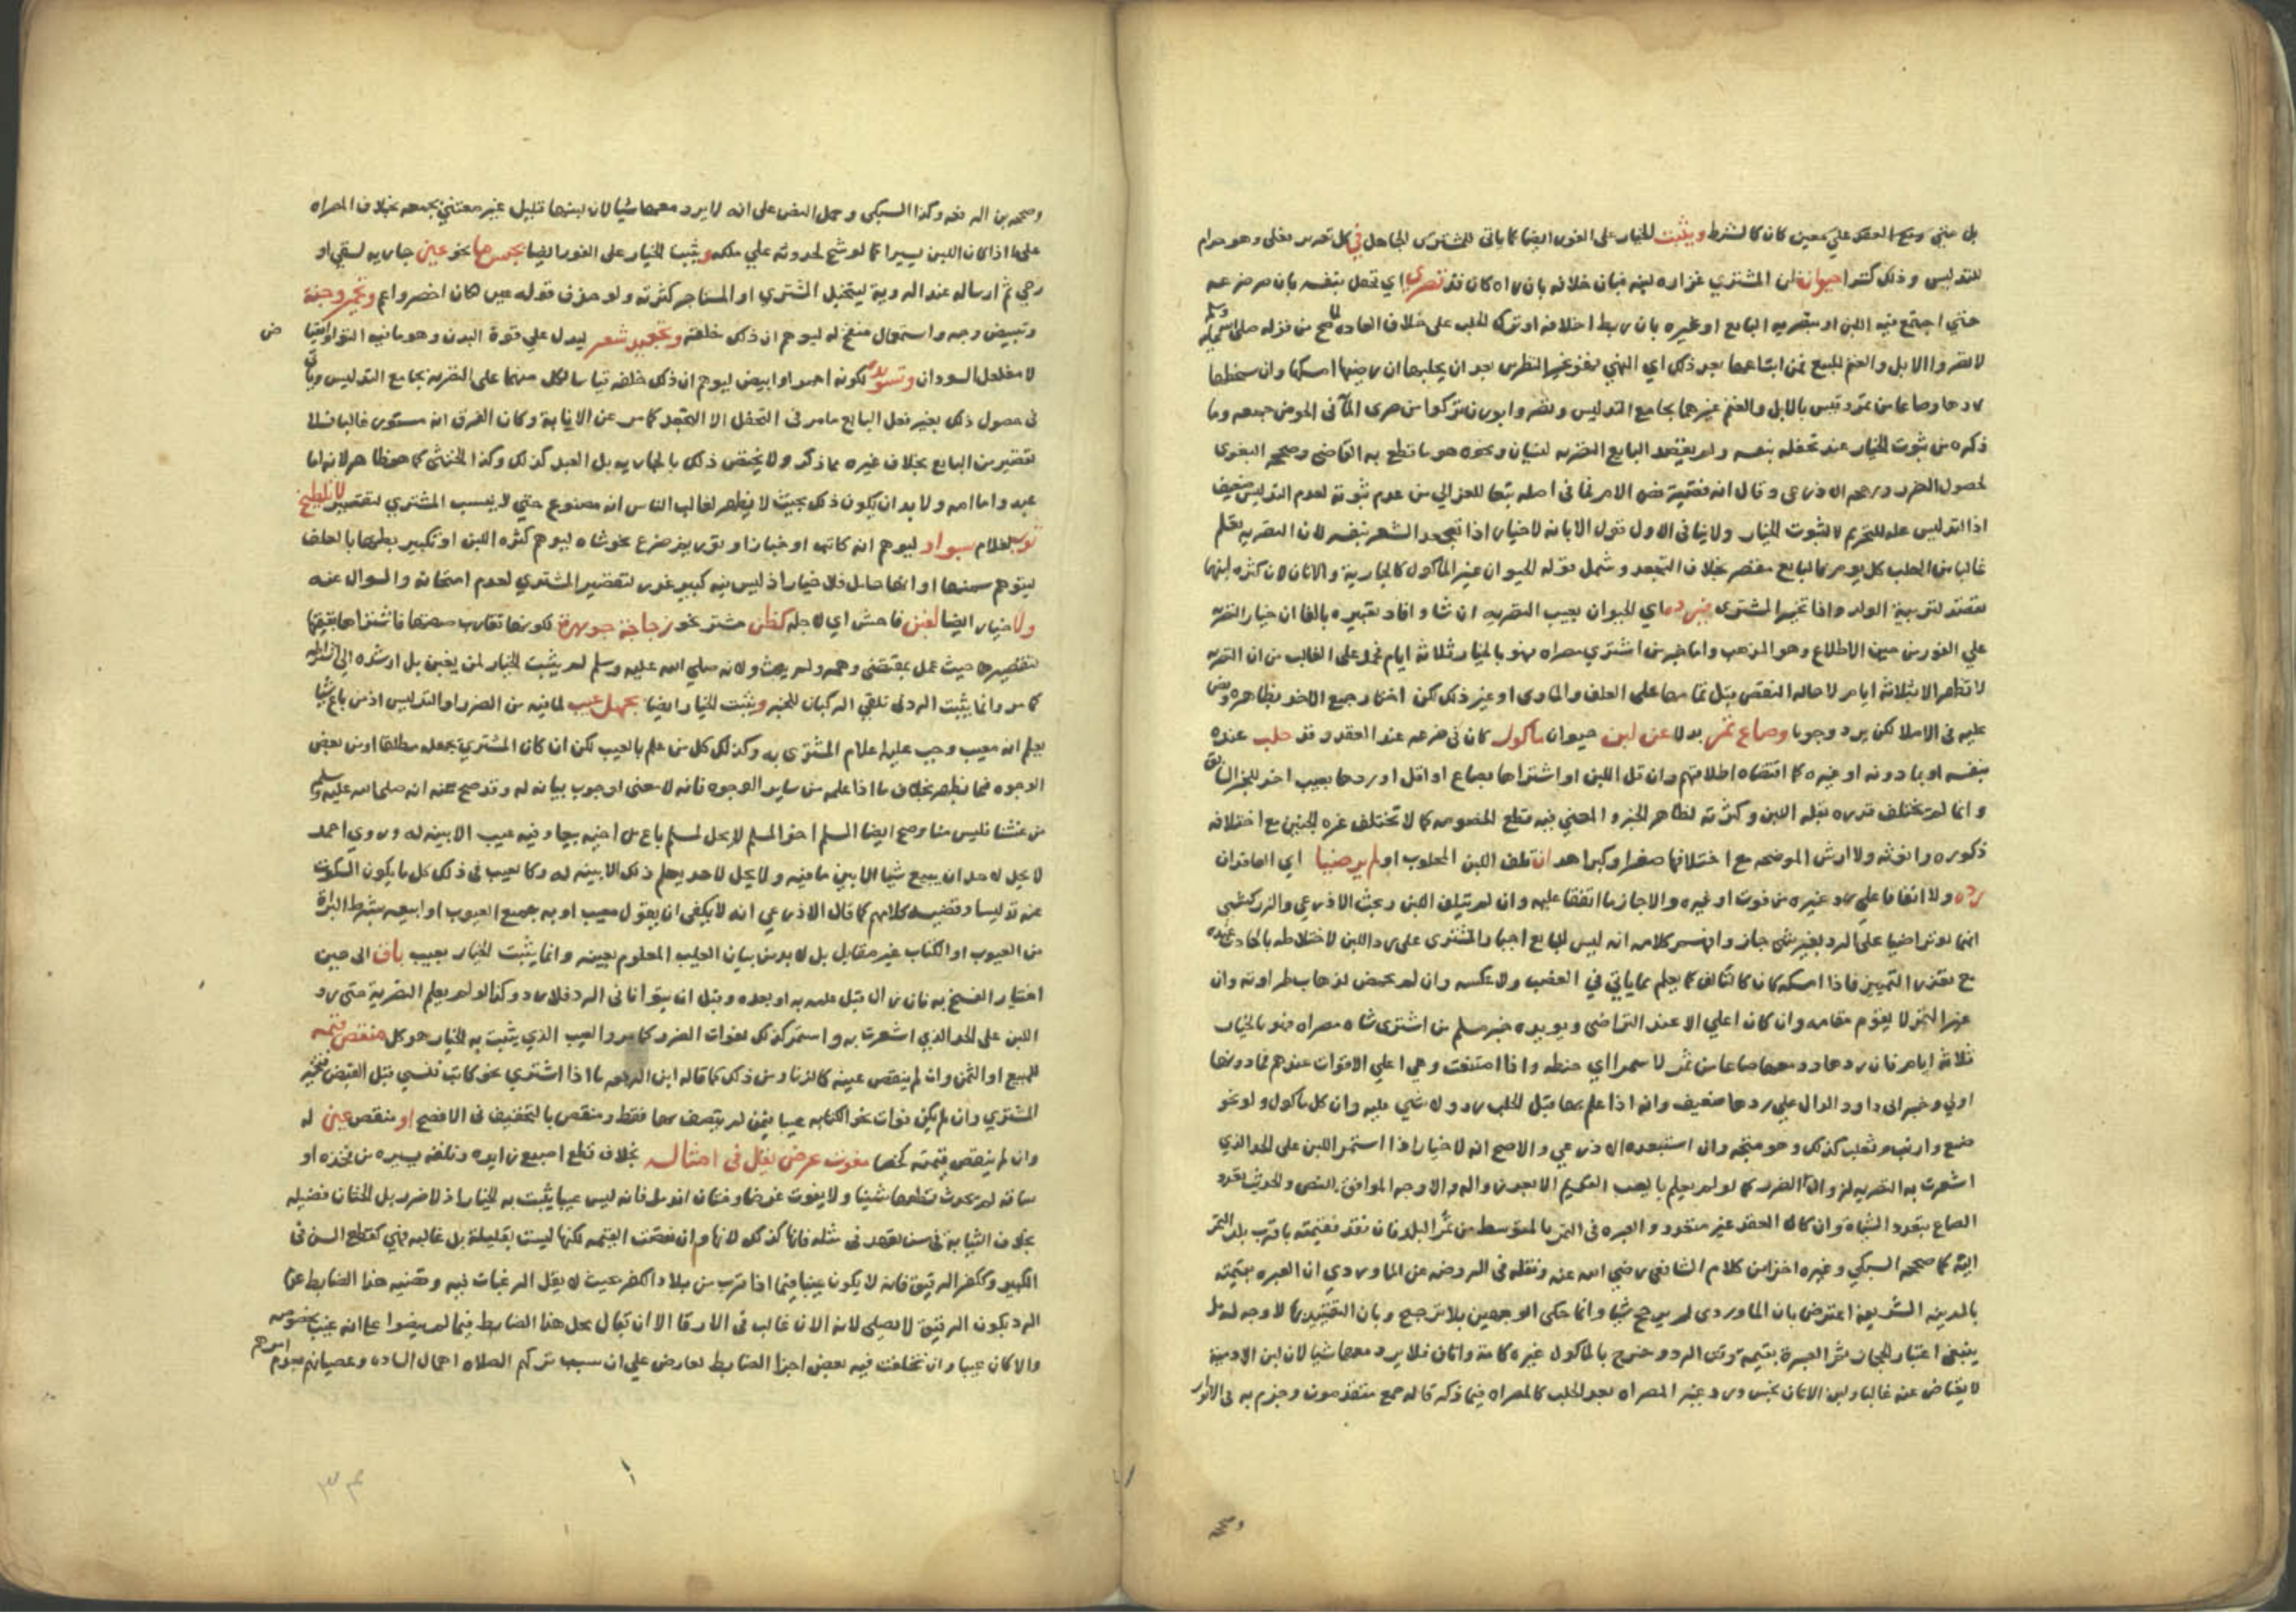 بل متي وقع العقد علي معين كان كالشرط ويثبت الخيار على الفور ايضا كما ياتي للمشتري الجاهل في كل تغرير فعلى وهو حرام
للتدليس وذلك كشرا حيوان ظن المشتري غزارة لبنه فبان خلافه بان راه كان قد تصرى اي تحفل بنفسه بان مرض عنه
حتي اجتمع فيه اللبن او بتصريه البايع او غيره بان ربط اخلافه او ترك الحلب على خلاف العاده لما صح من قوله صلى الله عليه وسلم
لا تصروا الابل والغنم للبيع فمن ابتاعها بعد ذلك اي النهي فهو بخير النظرين بعد ان يحلبها ان رضيها امسكها وان سخطها
ردها وصاعا من تمر وقيس بالابل والغنم غيرهما بجامع التدليس وتصروا بوزن تزكوا من صرى الما في الحوض جمعه وما
ذكره من ثبوت الخيار عند تحفله بنفسه ولم يقصد البايع التصريه لنسيان ونحوه هو ما قطع به القاضي وصححه البغوي
لحصول الضرر ورجحه الاذرعي وقال انه قضية نص الام فما في اصله تبعا للغزالي من عدم ثبوته لعدم التدليس ضعيف
اذ التدليس عله للتحريم لا لثبوت الخيار ولا ينافي الاول قول الابانه لا خيار اذا تجعد الشعر بنفسه لان التصريه تعلم
غالبا من الحلب كل يوم فالبايع مقصر بخلاف التجعد وشمل قوله الحيوان غير الماكول كالجارية والاتان لان كثرة لبنها
تقصد لتربية الولد واذا تخير المشتري فيرد ما اي الحيوان بعيب التصريه ان شا وافاد تعبيره بالفا ان خيار التصريه
علي الفور من حين الاطلاع وهو المذهب واما خبر من اشتري مصراه فهو بالخيار ثلاثة ايام فحمل على الغالب من ان التصريه
لا تظهر الا بثلاثة ايام لاحاله النقص قبل تمامها على العلف والماوى او غير ذلك لكن اختار جمع الاخذ بظاهره ونص
عليه في الاملا لكن يرد وجوبا وصاع تمر بدلا عن لبن حيوان ماكول كان في ضرعه عند العقد وقد حلب عنده
بنفسه او بماذونه او غيره كما اقتضاه اطلاقهم وان قل اللبن او اشتراها بصاع او اقل او ردها بعيب اخر للخبر السابق
وانما لم يختلف قدره بقلة اللبن وكثرته لظاهر الخبر والمعني فيه قطع الخصومه كما لا تختلف غره الجنين مع اختلافه
ذكوره وانوثه ولا ارش الموضحه مع اختلافها صغرا وكبرا هذا ان تلف اللبن المحلوب او لم يرضيا اي العاقدان
رده ولا اتفقا علي رد غيره من قوت او غيره والا جاز ما اتفقا عليه وان لم يتلف اللبن وبحث الاذرعي والزركشي
انهما لو تراضيا على الرد بغير شي جاز وافهم كلامه انه ليس للبايع اجبار المشتري على رد اللبن لاختلاطه بالحادث عنده
مع تعذر التمييز فاذا امسكه كان كالتالف كما يعلم مما ياتي في الغصب ولا عكسه وان لم يحمض لذهاب طراوته وان
غير التمر لا يقوم مقامه وان كان اعلي الا عند التراضي ويويده خبر مسلم من اشترى شاه مصراه فهو بالخيار
ثلاثة ايام فان ردها رد معها صاعا من تمر لا سمرا اي حنطه واذا امتنعت وهي اعلي الاقوات عندهم فما دونها
اولي وخبر ابى داود الدال علي ردها ضعيف وانه اذا علم بها قبل الحلب رد ولا شي عليه وان كل ماكول ولو نحو
ضبع وارنب وثعلب كذلك وهو متجه وان استبعده الاذرعي والاصح انه لا خيار اذا استمر اللبن على الحد الذي
اشعرت به التصريه لزوال الضرر كما لو لم يعلم بالعيب القديم الا بعد زواله والاوجه الموافق للنص والحديث تعدد
الصاع بتعدد الشاة وان كان العقد غير متعدد والعبره في التمر بالمتوسط من تمر البلد فان فقد فقيمته باقرب بلد التمر
اليه كما صححه السبكي وغيره اخذا من كلام الشافعي رضي الله عنه ونقله في الروضه عن الماوردي ان العبره بقيمته
بالمدينه الشريفة اعترض بان الماوردى لم يرجح شيا وانما حكى الوجهين بلا ترجيح وبان التقييد بها لا وجه له بل
ينبغي اعتبار الحجاز ثم العبرة بقيمة يوم الرد وخرج بالماكول غيره كامة واتان فلا يرد معها شيا لان لبن الادمية
لا يعتاض عنه غالبا ولبن الاتان نجس ورد غير المصراه بعد الحلب كالمصراه فيما ذكر قاله جمع متقدمون وجزم به في الانوار
وصححه
وصححه بن الرفعه وكذا السبكي وحمل النص على انه لا يرد معها شيا لان لبنها قليل غير معتني بجمعه بخلاف المصراه
على ما اذا كان اللبن يسيرا كما لو شح لحدوثه علي ملكه ويثبت الخيار على الفور ايضا بحبس ما نحو عين جاريه لسقي او
رحي ثم ارساله عند الروية ليتخيل المشتري او المستاجر كثرته ولو حذف قوله عين كان اخصر واعم وتحمير وجنة
وتبييض وجه واستعمال منفخ له ليوهم ان ذلك خلقته وتجعيد شعر ليدل علي قوة البدن وهو ما فيه التوا وانقباض
لا مفلفل السودان وتسويده لكونه احمر او ابيض ليوهم ان ذلك خلقه قياسا لكل منهما على التصريه بجامع التدليس وياتي
في حصول ذلك بغير فعل البايع ما مر في التحفل الا التجعد كما مر عن الابانة وكان الفرق انه مستور غالبا فلا
تقصير من البايع بخلاف غيره مما ذكر ولا يختص ذلك بالجاريه بل العبد كذلك وكذا الخنثى كما هو ظاهر لانه اما
عبد واما امه ولا بد ان يكون ذلك بحيث لا يظهر لغالب الناس انه مصنوع حتي لا ينسب المشتري لتقصير لا لطخ
ثوبه لغلام بسواد ليوهم انه كاتب او خباز او توريم ضرع نحو شاه ليوهم كثره اللبن او تكبير بطنها بالعلف
ليتوهم سمنها او انها حامل فلا خيار اذ ليس فيه كبير غرر لتقصير المشتري لعدم امتحانه والسوال عنه
ولا خيار ايضا لغبن فاحش اي لاجله كظن مشتر نحو زجاجة جوهرة لكونها تقارب صفتها فاشتراها بقيمتها
لتقصيره حيث عمل بمقتضي وهمه ولم يبحث ولانه صلي الله عليه وسلم لم يثبت الخيار لمن يغبن بل ارشده الي اشتراطه
كما مر وانما يثبت الرد في تلقي الركبان للخبر ويثبت الخيار ايضا بجهل عيب لما فيه من الضرر او التدليس اذ من باع شيا
يعلم انه معيب وجب عليه اعلام المشترى به وكذلك كل من علم بالعيب لكن ان كان المشتري يجهله مطلقا او من بعض
الوجوه فيما يظهر بخلاف ما اذا علمه من ساير الوجوه فانه لا معنى لوجوب بيانه له وقد صح عنه انه صلى الله عليه وسلم
من غشنا فليس منا وصح ايضا المسلم اخو المسلم لا يحل لمسلم باع من اخيه بيعا وفيه عيب الا بينه له وروي احمد
لا يحل لاحد ان يبيع شيا الا بين ما فيه ولا يحل لاحد يعلم ذلك الا بينه له وكالعيب في ذلك كل ما يكون السكوت
عنه تدليسا وقضيه كلامهم كما قال الاذرعي انه لا يكفي ان يقول معيب او به جميع العيوب او ابيعه بشرط البراة
من العيوب او الكتاب غير مقابل بل لا بد من بيان العيب المعلوم بعينه وانما يثبت الخيار بعيب باق الى حين
اختيار الفسخ به فان زال قبل علمه به او بعده وقبل ان يتوانا في الرد فلا رد وكذا لو لم يعلم التصرية حتى رد
اللبن على الحد الذي اشعرت به واستمر كذلك لفوات الضرر كما مر والعيب الذي يثبت به الخيار هو كل منقص قيمه
المبيع او الثمن وان لم ينقص عينه كالزنا ومن ذلك كما قاله ابن الرفعه ما اذا اشتري نحو كاتب فنسي قبل القبض فيخير
المشتري وان لم يكن فوات نحو الكتابه عيبا فيمن لم يتصف بها فقط ومنقص بالتخفيف في الافصح او منقص عين له
وان لم ينقص قيمته كخصا مفوت عرض يقل في امثاله بخلاف قطع اصبع زايده وفلقه يسيره من فخذه او
ساقه لم يحدث قطعها شينا ولا يفوت غرضا وختان انو مل فانه ليس عيبا يثبت به الخيار اذ لا ضرر بل الختان فضيله
بخلاف الثيابة في سن لا تعهد في مثله فانها كذلك لانها وان نقصت القيمه لكنها ليست بقليلة بل غالبه فهي كقطع السن في
الكبير وككفر الرقيق فانه لا يكون عيبا فيما اذا قرب من بلاد الكفر بحيث لا يقل الرغبات فيه وقضيه هذا الضابط عن
الرد بكون الرقيق لا يصلي لانه الان غالب في الارقا الا ان تيقال محل هذا الضابط فيما لم ينصوا على انه عيب بخصوصه
والا كان عيبا وان تخلفت فيه بعض اجزا الضابط تعارض علي ان سبب تركهم الصلاه اهمال الساده وعصيانهم بعدم امرهم
٣٤